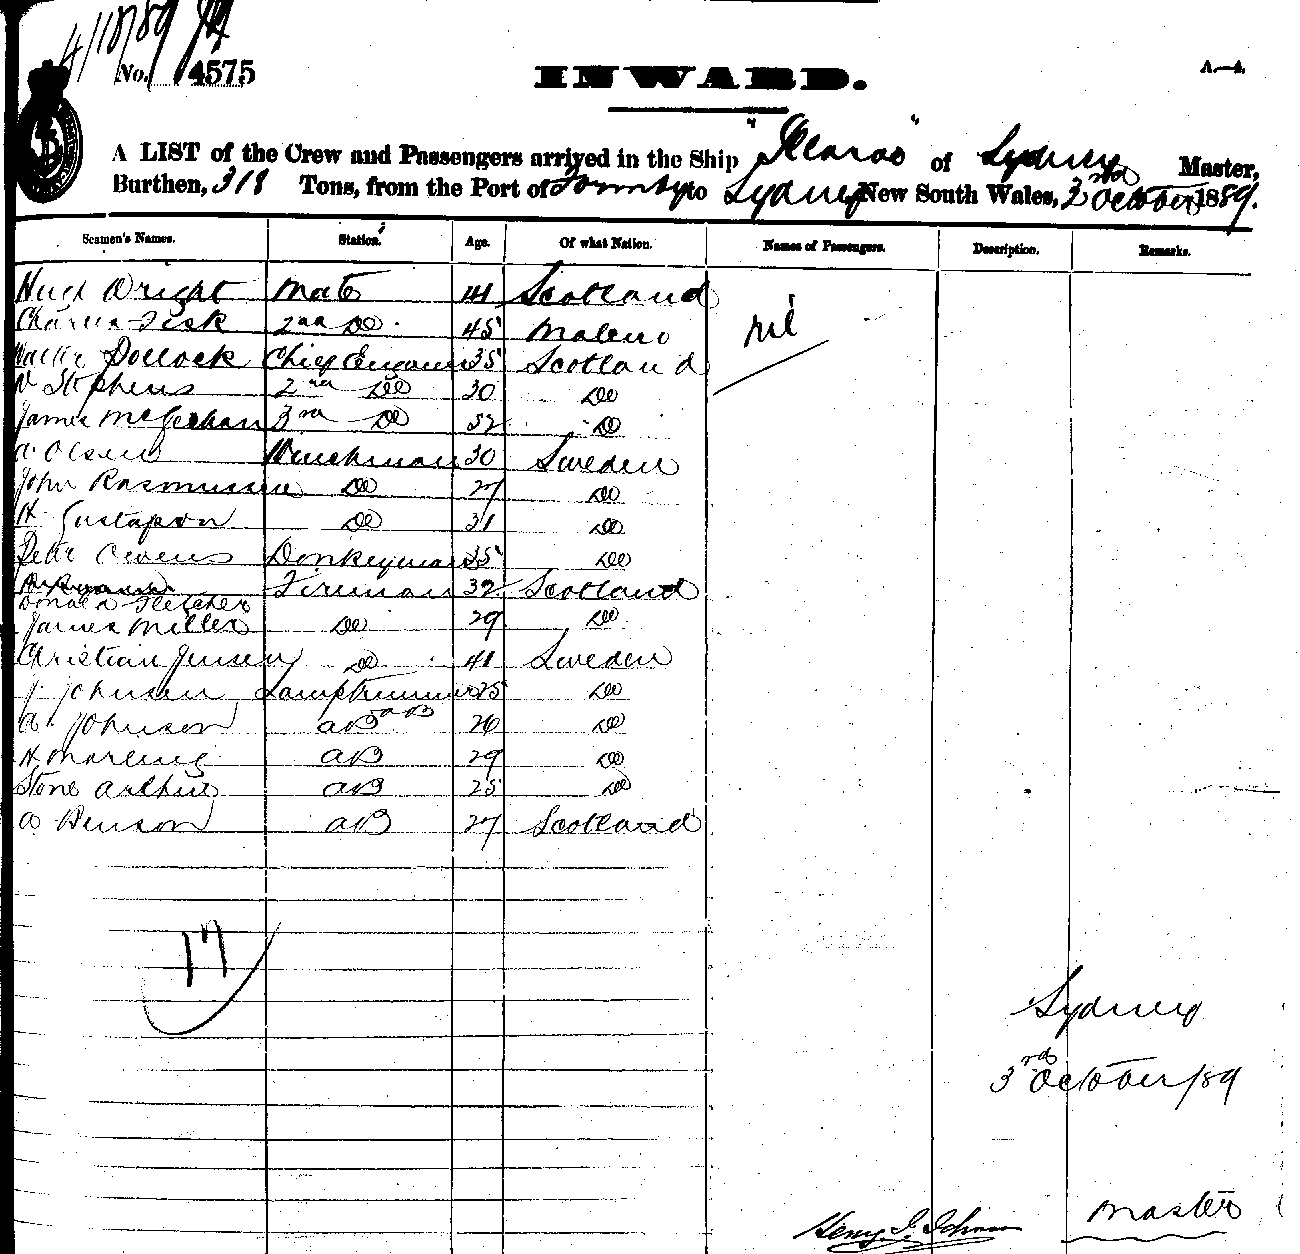 4/10/89
No. 4575
INWARD.
A.—A.
A LIST of the Crew and Passengers arrived in the Ship " " of Sydney Master,
Burthen, 318 Tons, from the Port of to Sydney New South Wales, 3rd October 1889.
Seamen's Names. Station. Age. Of what Nation. Names of Passengers. Description. Remarks.
Hugh Wright Mate 41 Scotland nil
Charles Fisk 2nd Do 45
Walter Pollock Chief Engineer 35 Scotland
Stephens 2nd Do 30 Do
James McGechan 3rd Do 32 Do
A Olsen Winchman 30 Sweden
John Rasmussen Do 27 Do
H Gustafson Do 31 Do
Peter Owens Donkeyman 35 Do
Fireman 32 Scotland
Donald Fletcher
James Miller Do 29 Do
Christian Jensen Do 41 Sweden
J Johnsen Lamptrimmer 25 Do
A Johnson AB AB 26 Do
H Marling AB 29 Do
Stone Arthur AB 25 Do
A Benson AB 27 Scotland
17
Sydney
3rd October/89
Henry J. Johnson Master